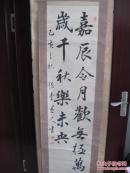 嘉辰令月歡無極萬
歲千秋樂未央